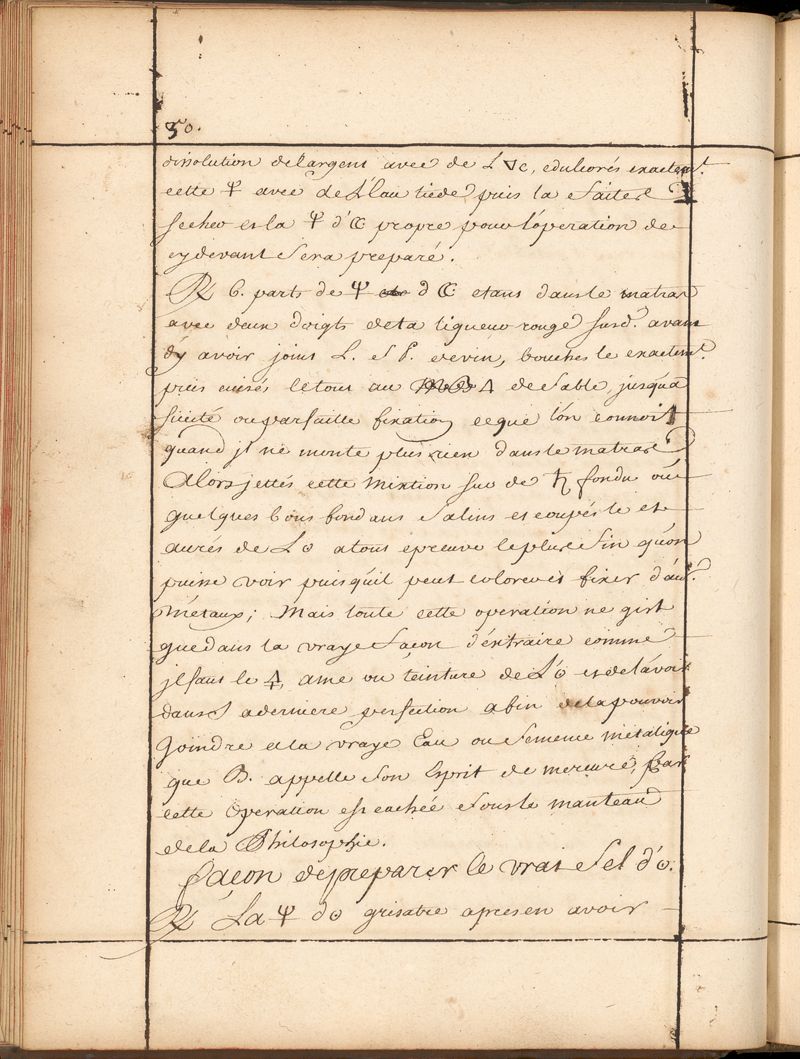 50.
dissolution de largent avec de L🜄c, edulcorés exactem.t
cette 🜍 avec de L'Eau tiede puis la faites
secher et la Ψ d'☾ propre pour l'operation de
cy devant sera preparé.
℞ 6. parts de Ψ d ☾ etans dans le matras
avec deux doigts de ta liqueur rouge susd.e avant
d'y avoir joint L. S P. de vin, bouchés le exactem.t
puis cuisés le tout au 🜂 de sable jusqua
sicité ou parfaitte fixation ceque l'ón connoit
quand jl ne monte plus rien dans le matras
Alors jettés cette mixtion sur de ♄ fondu ou
quelques bons fondans salins et coupés le et
aurés de L☉ a tout epreuve le plus fin qu'on
puisse voir puisqu'il peut colorer et fixer d'au.s
métaux; Mais toute cette operation ne gist
que dans la vraye facon d'éxtraire comme
jl faut le 🜍, ame ou teinture de L'☉ et de l'avoir
dans sa derniere perfection afin de la pouvoir
Joindre a la vraye Eau ou semence métalique
que B. appelle son Esprit de mercure, Car
cette Operation est cachée sous le manteau
de la Philosophie.
façon de preparer le vrai Sel d'☉.
℞ La Ψ d☉ grisatre apres en avoir